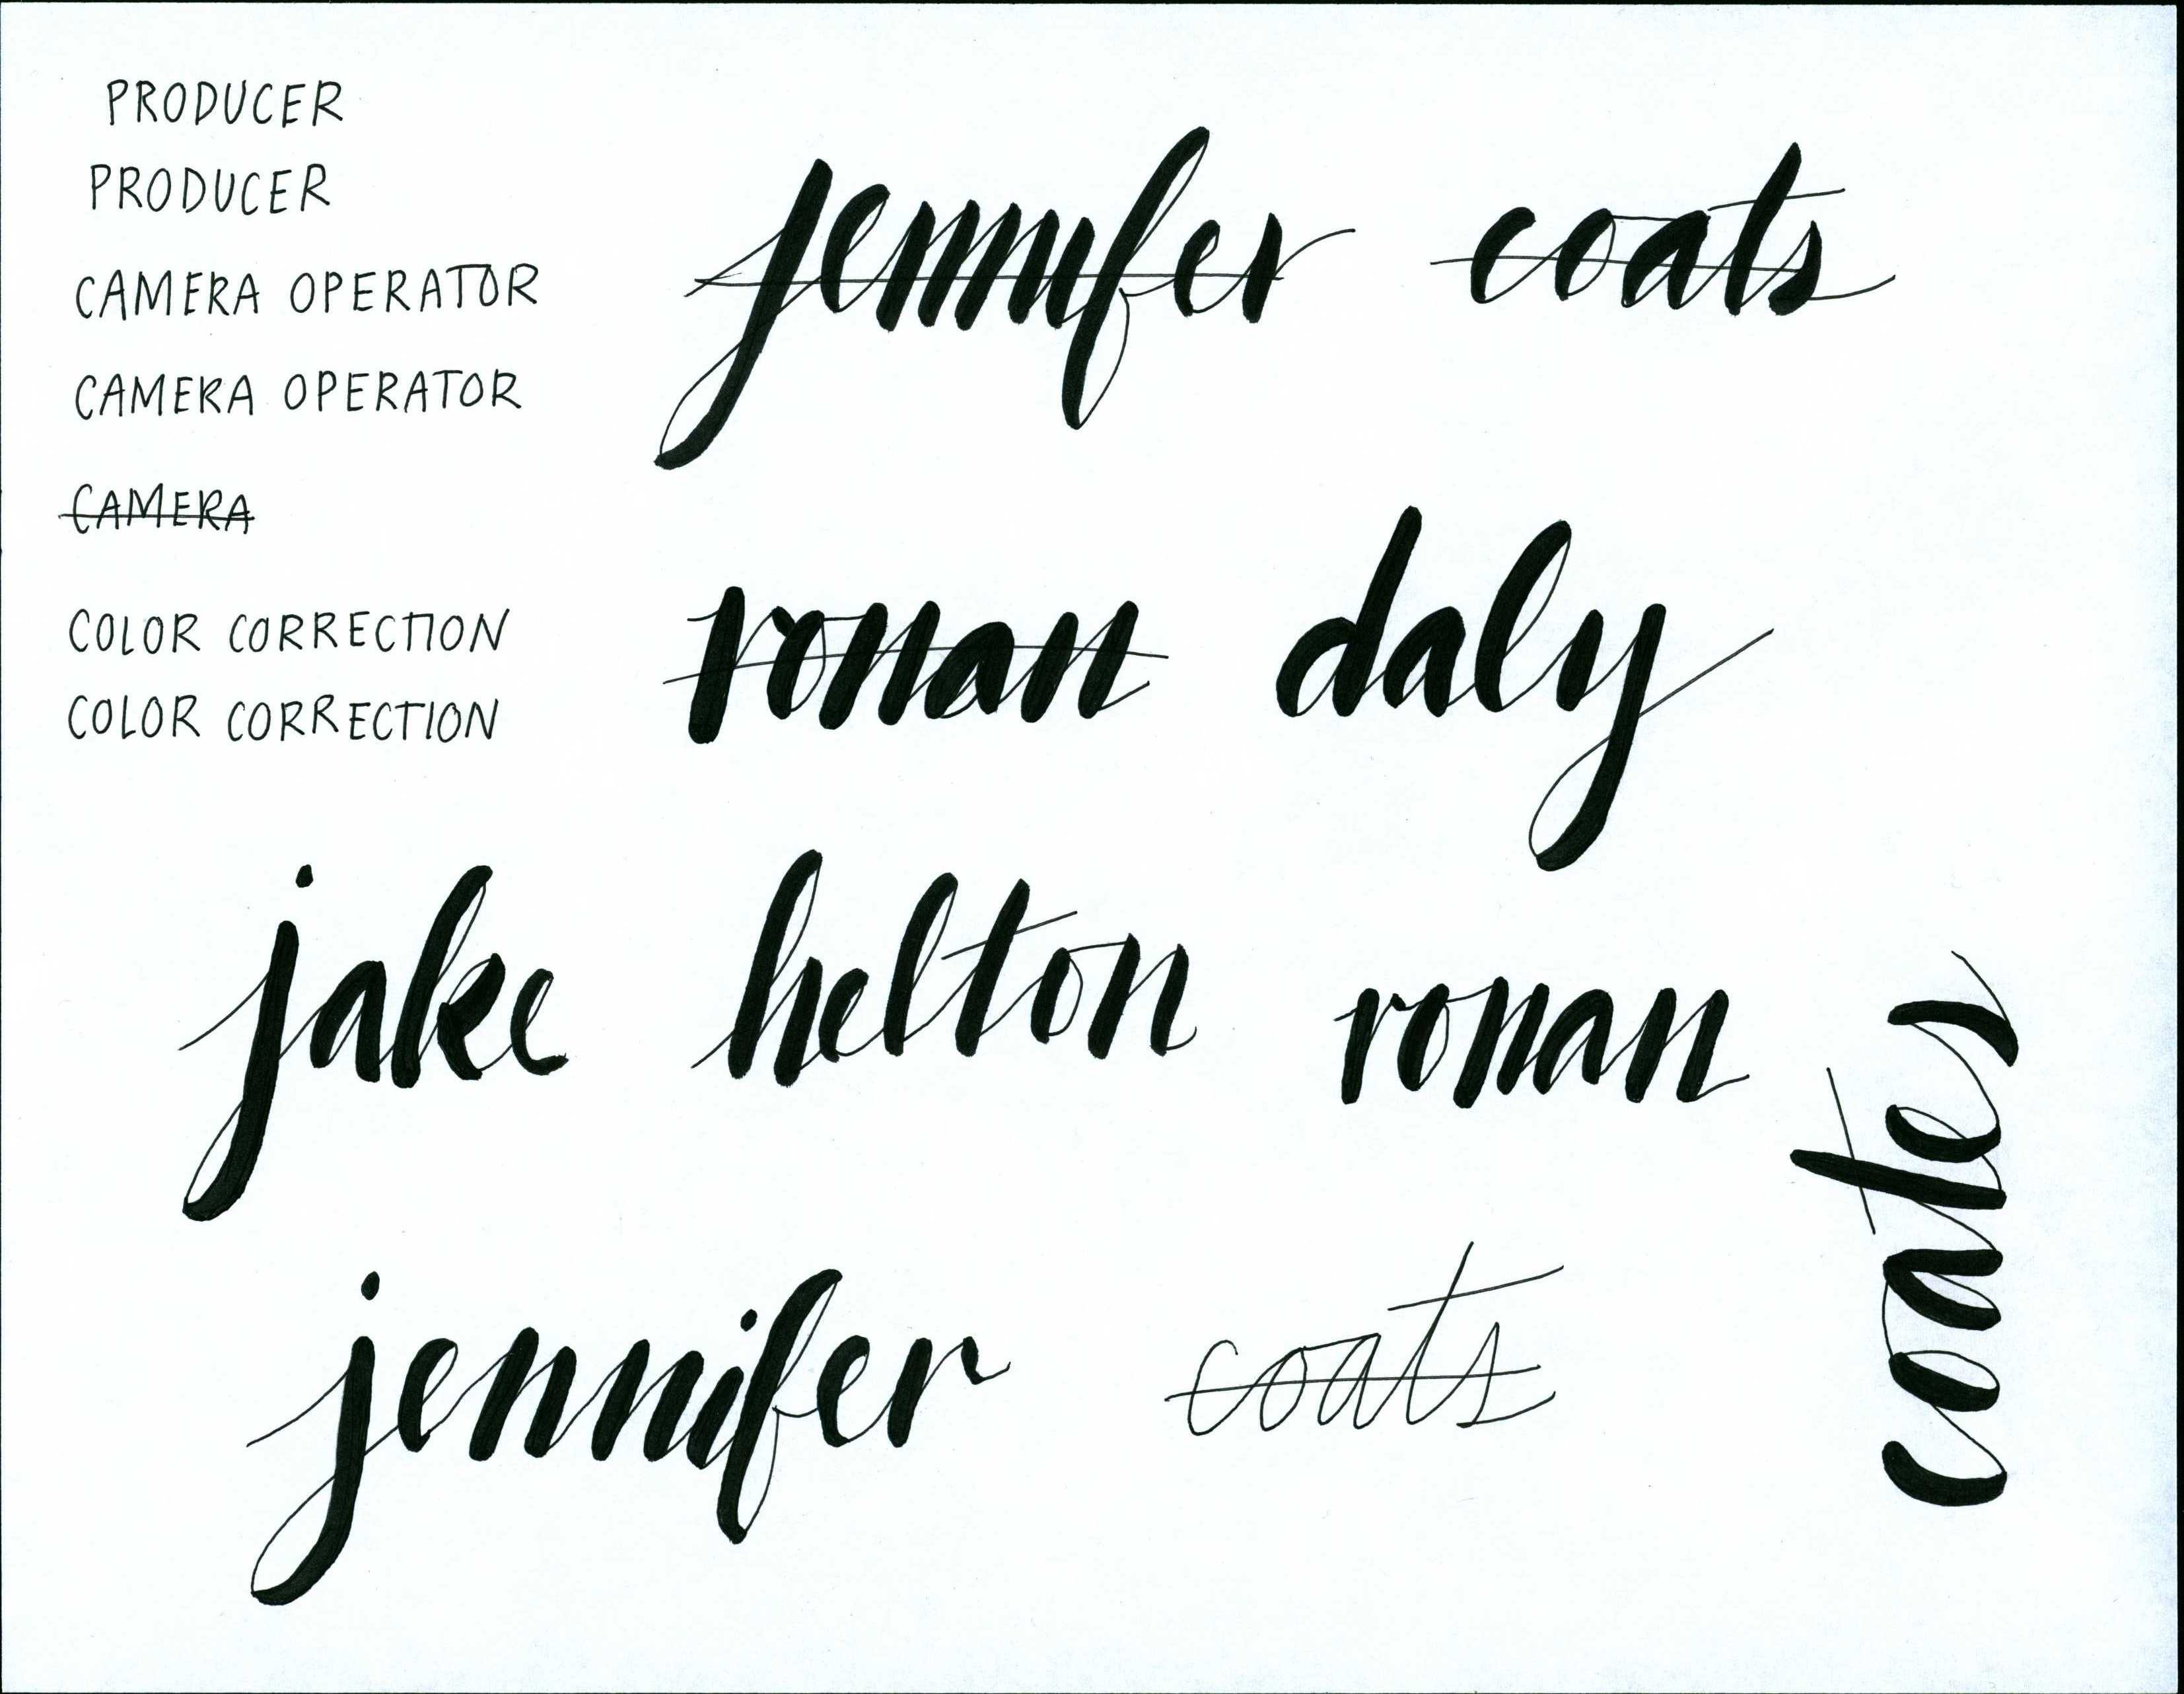 PRODUCER
PRODUCER
CAMERA OPERATOR
CAMERA OPERATOR
CAMERA
COLOR CORRECTION
COLOR CORRECTION
jennifer coats
ronan daly
jake helton ronan
jennifer coats
coates